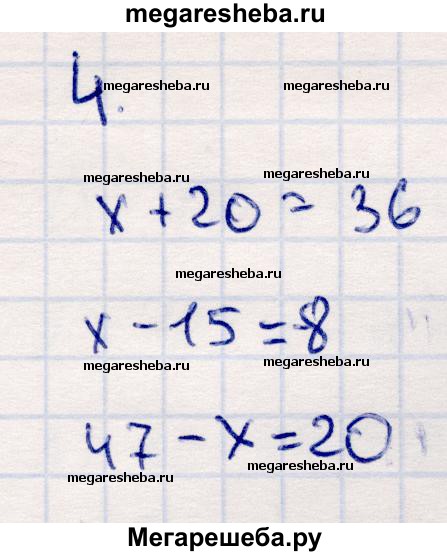 megaresheba.ru
4.
megaresheba.ru megaresheba.ru
megaresheba.ru megaresheba.ru
x + 20 = 36
megaresheba.ru
x - 15 = 8
megaresheba.ru megaresheba.ru
47 - x = 20
megaresheba.ru megaresheba.ru
Мегарешеба.ру